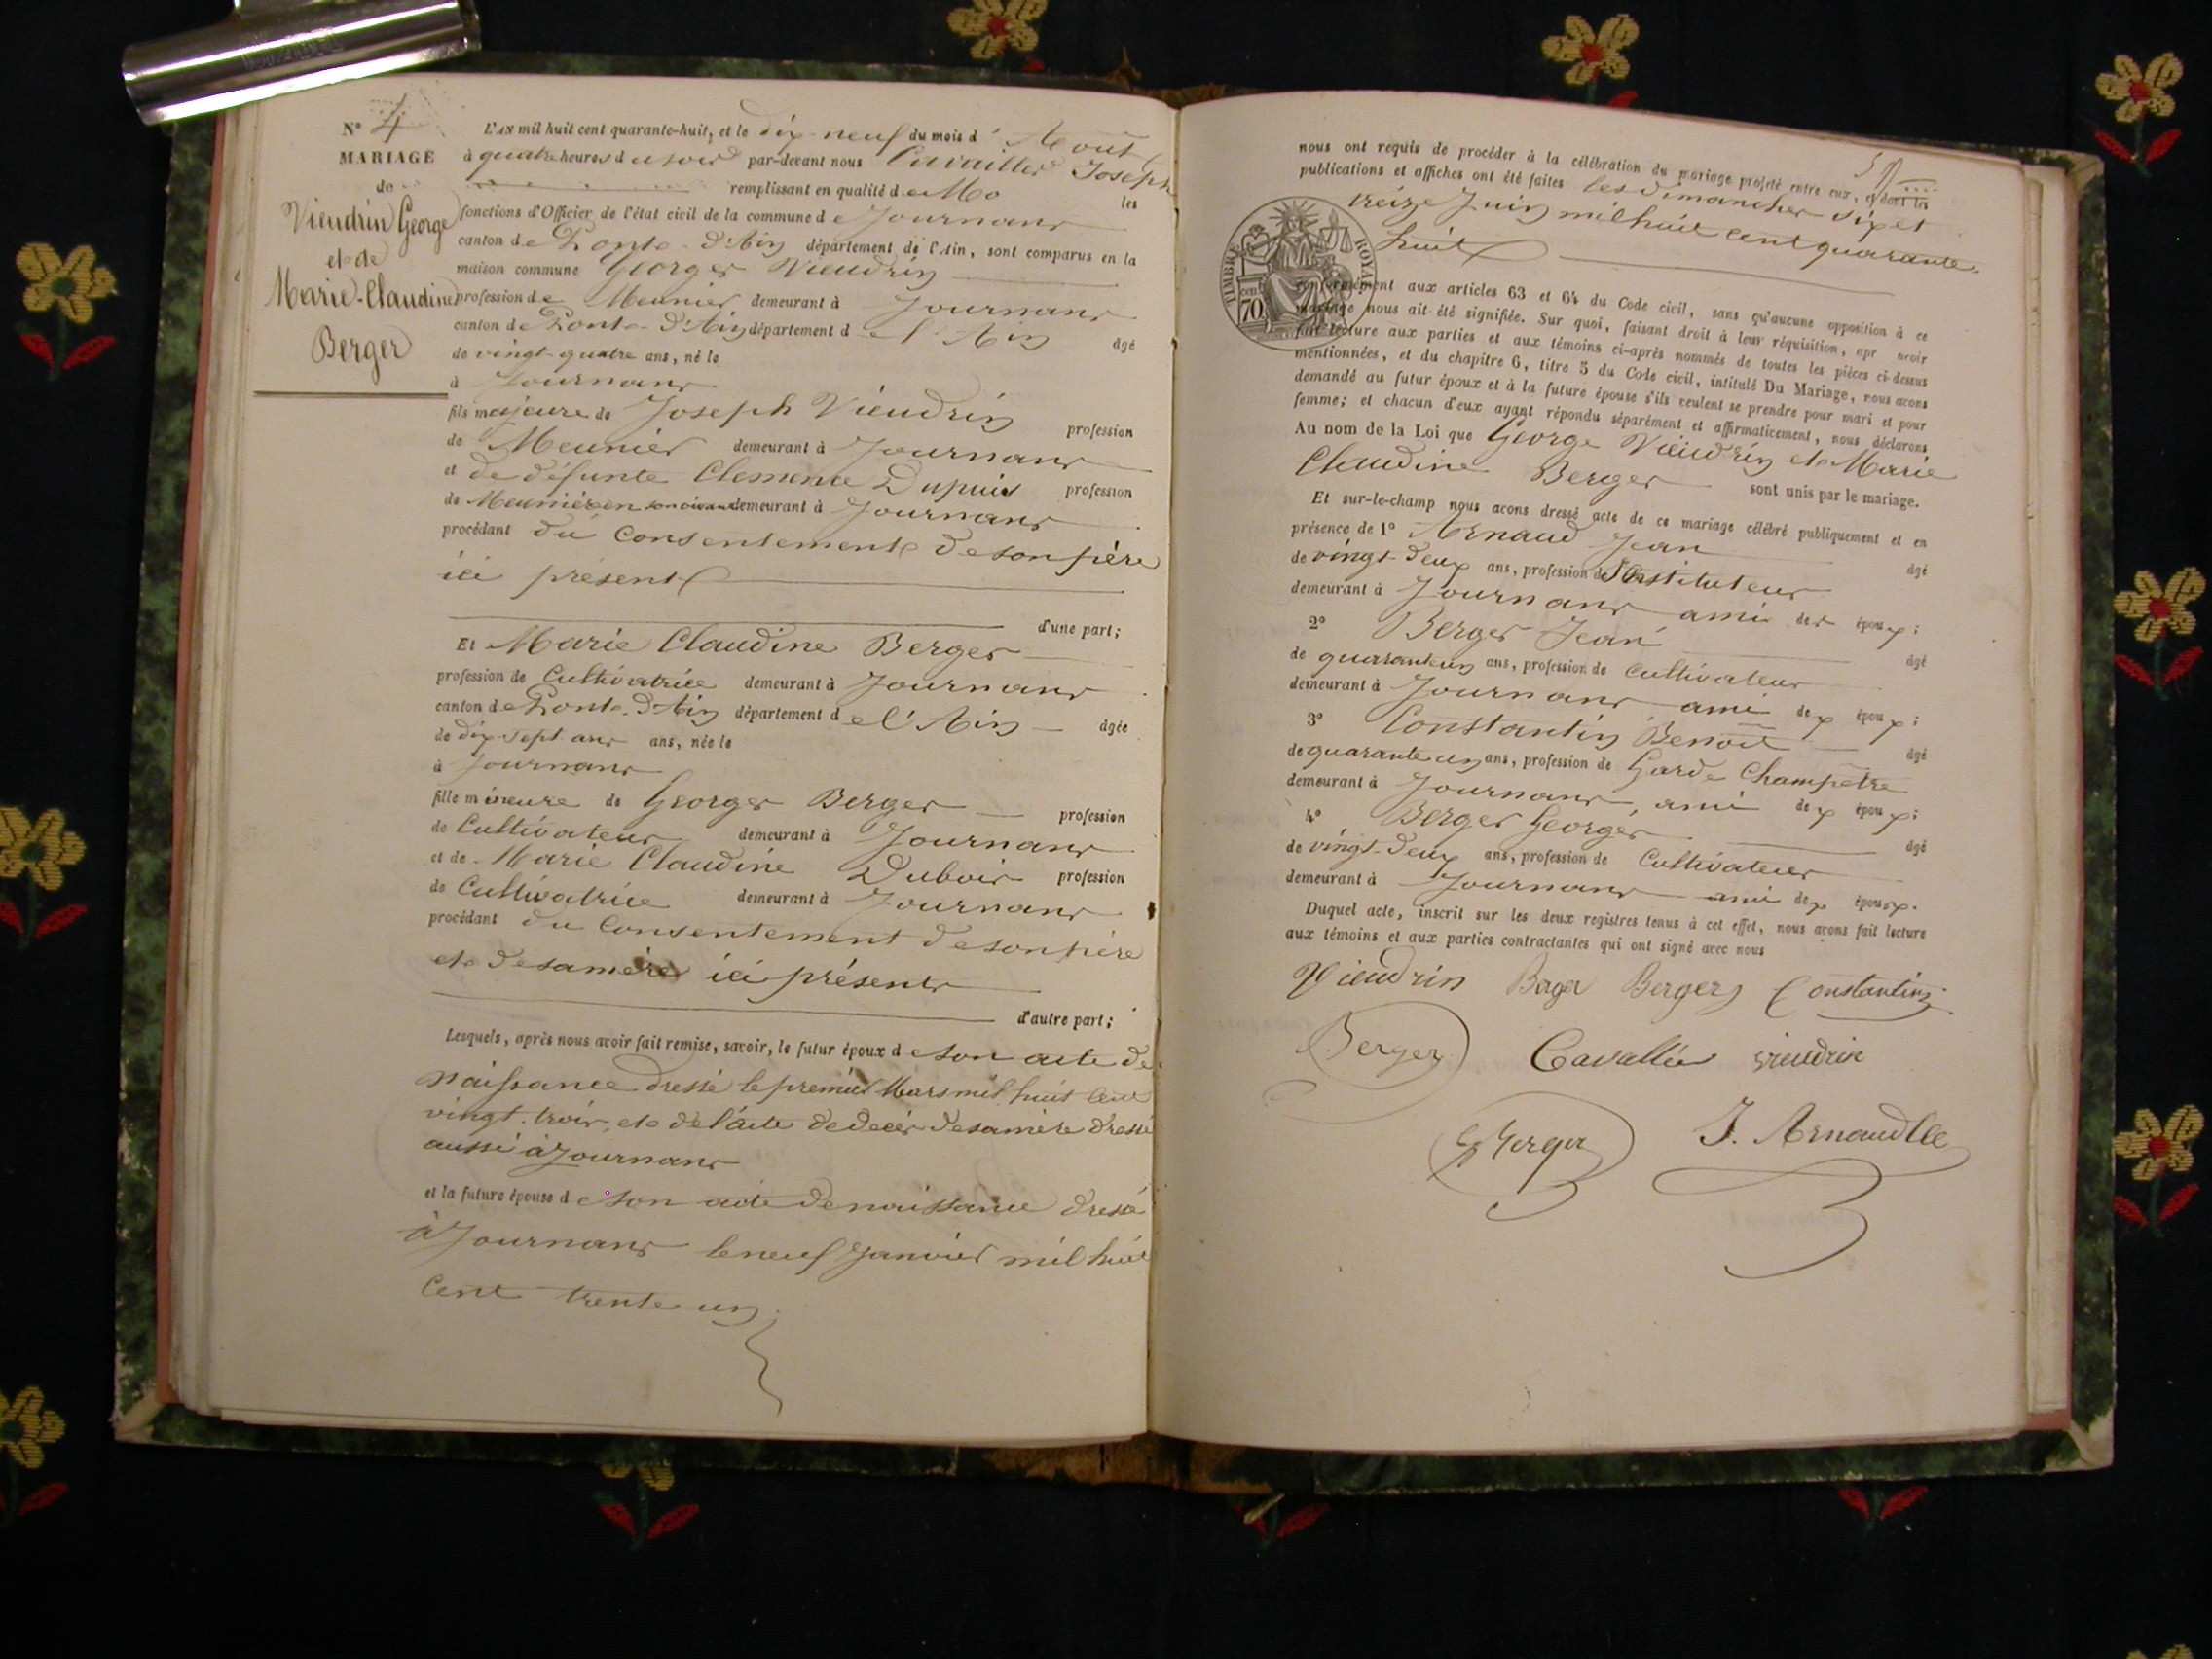 N° 4
MARIAGE
de
Vieudrin George
et de
Marie-Claudine
Berger
L'AN mil huit cent quarante-huit, et le dix-neuf du mois d'Août
à quatre heures du soir par-devant nous Cavailler Joseph
remplissant en qualité de les
fonctions d'Officier de l'état civil de la commune de Journans
canton de Pont-d'Ain département de l'Ain, sont comparus en la
maison commune George Vieudrin
profession de Meunier demeurant à Journans
canton de Pont-d'Ain département de l'Ain âgé
de vingt-quatre ans, né le
à Journans
fils majeure de Joseph Vieudrin profession
de Meunier demeurant à Journans
et de défunte Clemence Dupuis profession
de Meunière en son vivant demeurant à Journans
procédant du consentement de son père
ici présent
d'une part;
Et Marie Claudine Berger
profession de Cultivatrice demeurant à Journans
canton de Pont-d'Ain département de l'Ain âgée
de dix-sept ans ans, née le
à Journans
fille mineure de George Berger profession
de Cultivateur demeurant à Journans
et de Marie Claudine Dubois profession
de Cultivatrice demeurant à Journans
procédant du consentement de son père
et de sa mère ici présents
d'autre part;
Lesquels, après nous avoir fait remise, savoir, le futur époux de son acte de
naissance dressé le premier Mars mil huit cent
vingt-trois, et de l'acte de decès de sa mère dressé
aussi à Journans
et la future épouse de son acte de naissance dressé
à Journans le neuf Janvier mil huit
cent trente un.
nous ont requis de procéder à la célébration du mariage projeté entre eux, et dont les
publications et affiches ont été faites les dimanches six et
treize Juin mil huit cent quarante
huit
TIMBRE ROYAL
70 cent
conformément aux articles 63 et 64 du Code civil, sans qu'aucune opposition à ce
mariage nous ait été signifiée. Sur quoi, faisant droit à leur réquisition, apr avoir
fait lecture aux parties et aux témoins ci-après nommés de toutes les pièces ci-dessus
mentionnées, et du chapitre 6, titre 5 du Code civil, intitulé Du Mariage, nous avons
demandé au futur époux et à la future épouse s'ils veulent se prendre pour mari et pour
femme; et chacun d'eux ayant répondu séparément et affirmativement, nous déclarons
Au nom de la Loi que George Vieudrin et Marie
Claudine Berger sont unis par le mariage.
Et sur-le-champ nous avons dressé acte de ce mariage célébré publiquement et en
présence de 1° Arnaud Jean âgé
de vingt-deux ans, profession de Instituteur
demeurant à Journans ami des époux;
2° Berger Jean âgé
de quarante un ans, profession de Cultivateur
demeurant à Journans ami des époux;
3° Constantin Benoit âgé
de quarante un ans, profession de Garde Champêtre
demeurant à Journans, ami des époux;
4° Berger George âgé
de vingt-deux ans, profession de Cultivateur
demeurant à Journans ami des époux.
Duquel acte, inscrit sur les deux registres tenus à cet effet, nous avons fait lecture
aux témoins et aux parties contractantes qui ont signé avec nous
Vieudrin Berger Berger Constantin
Berger Cavallier vieudrin
G Berger J. Arnaud